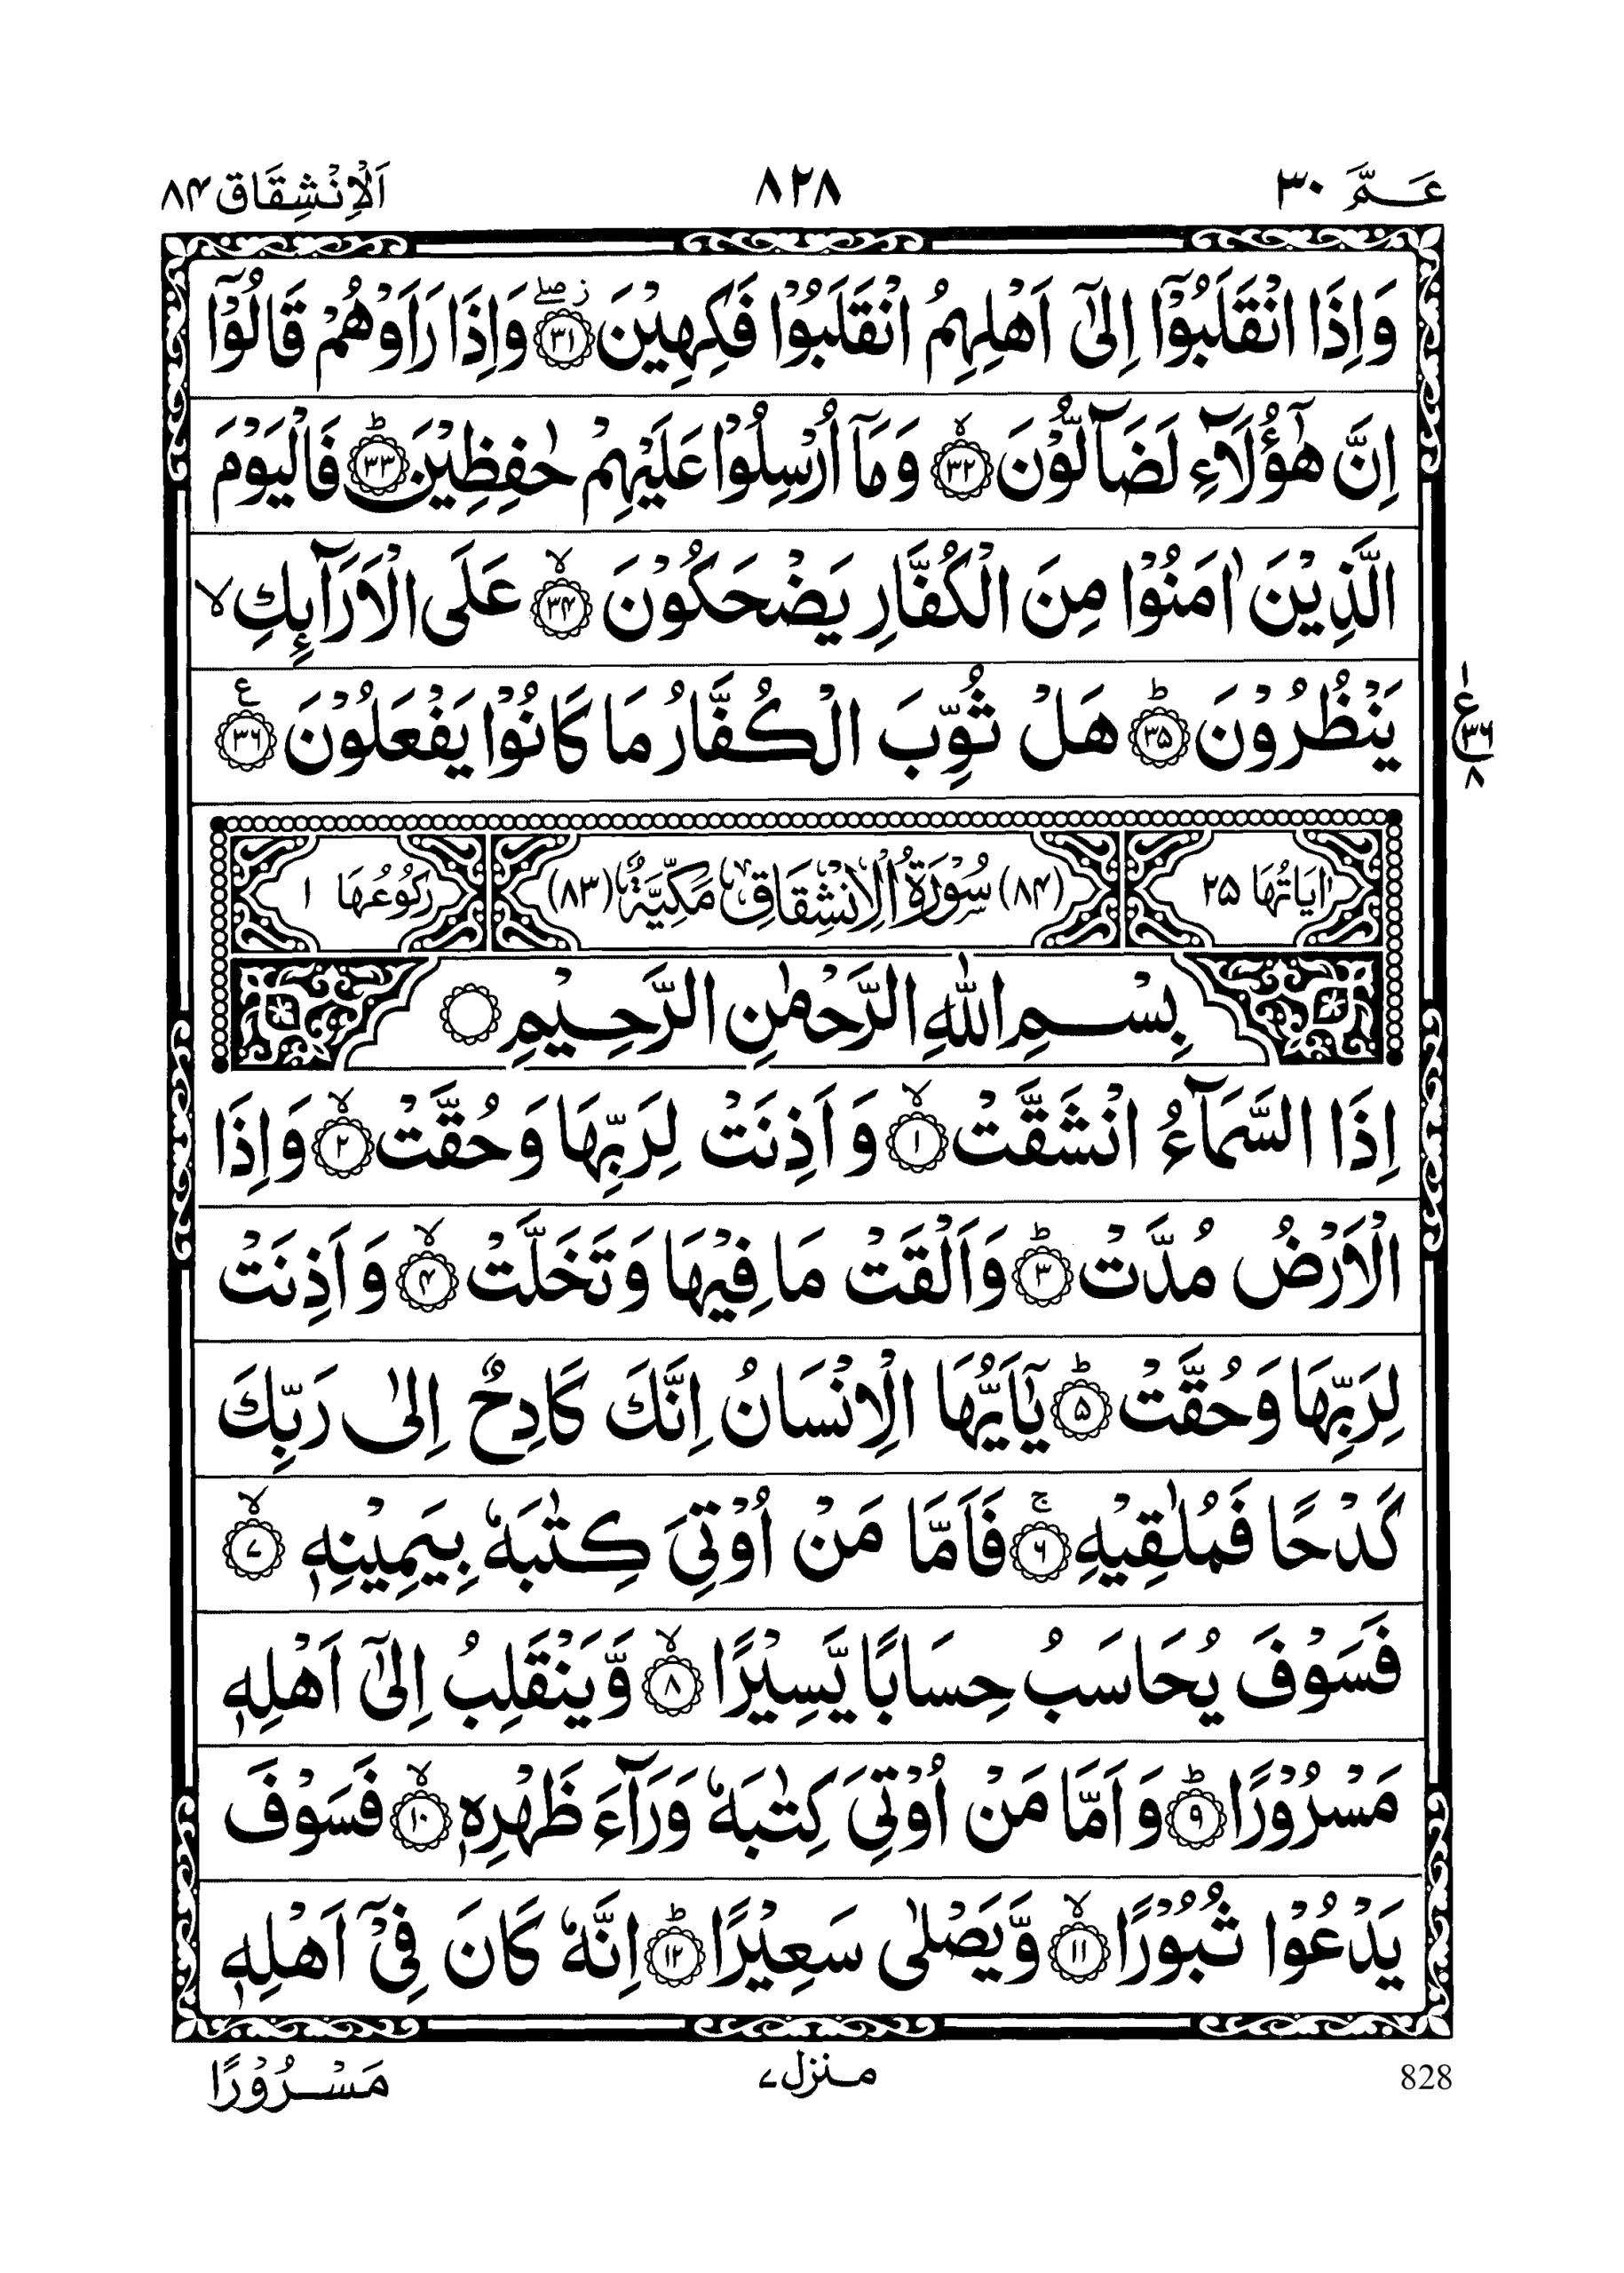 عَـمَّ ۳۰ ۸۲۸ اَلْاِنْشِقَاق ۸۴
وَاِذَا انْقَلَبُوْۤا اِلٰۤى اَهْلِهِمُ انْقَلَبُوْا فَكِهِيْنَ ۳۱ وَاِذَا رَاَوْهُمْ قَالُوْۤا
اِنَّ هٰۤؤُلَآءِ لَضَآلُّوْنَ ۳۲ وَمَاۤ اُرْسِلُوْا عَلَيْهِمْ حٰفِظِيْنَ ۳۳ فَالْيَوْمَ
الَّذِيْنَ اٰمَنُوْا مِنَ الْكُفَّارِ يَضْحَكُوْنَ ۳۴ عَلَى الْاَرَآئِكِ ۙ
يَنْظُرُوْنَ ۳۵ هَلْ ثُوِّبَ الْكُفَّارُ مَا كَانُوْا يَفْعَلُوْنَ ۳۶
ع ۱ ۳۶ ۸
اٰيَاتُهَا ۲۵ (۸۴) سُوْرَةُ الْاِنْشِقَاقِ مَكِّيَّةٌ (۸۳) رُكُوْعُهَا ۱
بِسْمِ اللّٰهِ الرَّحْمٰنِ الرَّحِيْمِ
اِذَا السَّمَآءُ انْشَقَّتْ ۱ وَاَذِنَتْ لِرَبِّهَا وَحُقَّتْ ۲ وَاِذَا
الْاَرْضُ مُدَّتْ ۳ وَاَلْقَتْ مَا فِيْهَا وَتَخَلَّتْ ۴ وَاَذِنَتْ
لِرَبِّهَا وَحُقَّتْ ۵ يٰۤاَيُّهَا الْاِنْسَانُ اِنَّكَ كَادِحٌ اِلٰى رَبِّكَ
كَدْحًا فَمُلٰقِيْهِ ۶ فَاَمَّا مَنْ اُوْتِيَ كِتٰبَهٗ بِيَمِيْنِهٖ ۷
فَسَوْفَ يُحَاسَبُ حِسَابًا يَّسِيْرًا ۸ وَّيَنْقَلِبُ اِلٰۤى اَهْلِهٖ
مَسْرُوْرًا ۹ وَاَمَّا مَنْ اُوْتِيَ كِتٰبَهٗ وَرَآءَ ظَهْرِهٖ ۱۰ فَسَوْفَ
يَدْعُوْا ثُبُوْرًا ۱۱ وَّيَصْلٰى سَعِيْرًا ۱۲ اِنَّهٗ كَانَ فِيْۤ اَهْلِهٖ
828 منزل ۷ مَسْرُوْرًا